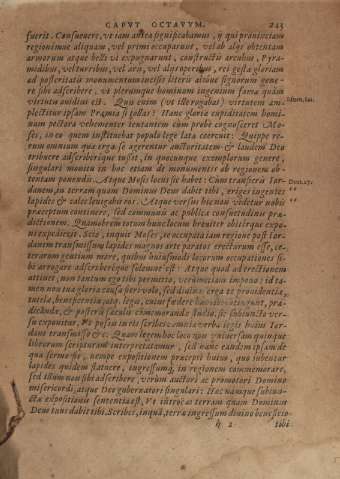 CAPVT OCTAVVM. 243
fuerit. Consuevere, ut iam antea significabamus, ij qui pronisciam
regionemue aliquam, vel primi occuparunt, vel ab alijs obtentam
armorum atque belli vi expugnarunt, constructis arcubus, Pyra-
midibus, vel turribus, vel aris, vel alijs operibus, rei gestæ gloriam
ad posteritatis monumentum incisis literis aliove signorum gene-
re sibi adscribere, ut plerumque hominum ingenium fama quàm
virtutis avidius est. Quis enim (ut ille rogabat) virtutem am-
plectitur ipsam Præmia si tollas? Hanc gloriæ cupiditatem homi-
num pectora vehementer tentantem cum probe cognosceret Mo-
ses, in eo quem instituebat populo lege lata coercuit: Quippe re-
rum omnium quæ erga se agerentur auctoritatem & laudem Deo
tribuere adscribereque iussit, in quocunque exemplorum genere,
singulari monitu in hoc etiam de monumentis ob regionem ob-
tentam ponendis. Atque Mosis lex sic habet: Cum transieris Ior-
danem, in terram quam Dominus Deus dabit tibi, eriges ingentes
lapides & calce levigabis eos. Atque versus hic non videtur nobis
præceptum continere, sed communis ac publicæ consuetudinis præ-
dictionem. Quamobrem totum hunc locum breviter obiterque expo-
ni expedierit. Scio, inquit Moses, te occupatis iam regione post Ior-
danem transmissum lapides magnos arte paratos erecturum esse, ce-
terarum gentium more, quibus huiusmodi locorum occupationes si-
bi arrogare adscribereque solemne est: Atque quod ad erectionem
attinet, non tantum equo tibi permitto, verùm etiam impono; id ta-
men non tua gloria causa
tutela, beneficentia
dicabunt, & posteris sæculis commemoranda
su exponitur. Et postea in eis scribes omnia verba legis huius Ior-
dane transmisso &c. Quare legem hoc loco non universam quinque
librorum scripturam interpretatemur, sed hanc eandem ipsam de
qua sermo sit, nempe expositionem præcepti huius, quo iubentur
lapides quidem statuere, ingressumque in regionem commemorare,
sed illum non sibi adscribere, verùm auctori ac promotori Domino
misericordi, atque Deo gubernatori singulari: Hac namque subiun-
ctæ expositionis sententia est, Ut introeas terram quam Dominus
Deus tuus dabit tibi. Scribes, inquā, terræ ingressum divino beneficio
h 2 tibi
Deut. 27.